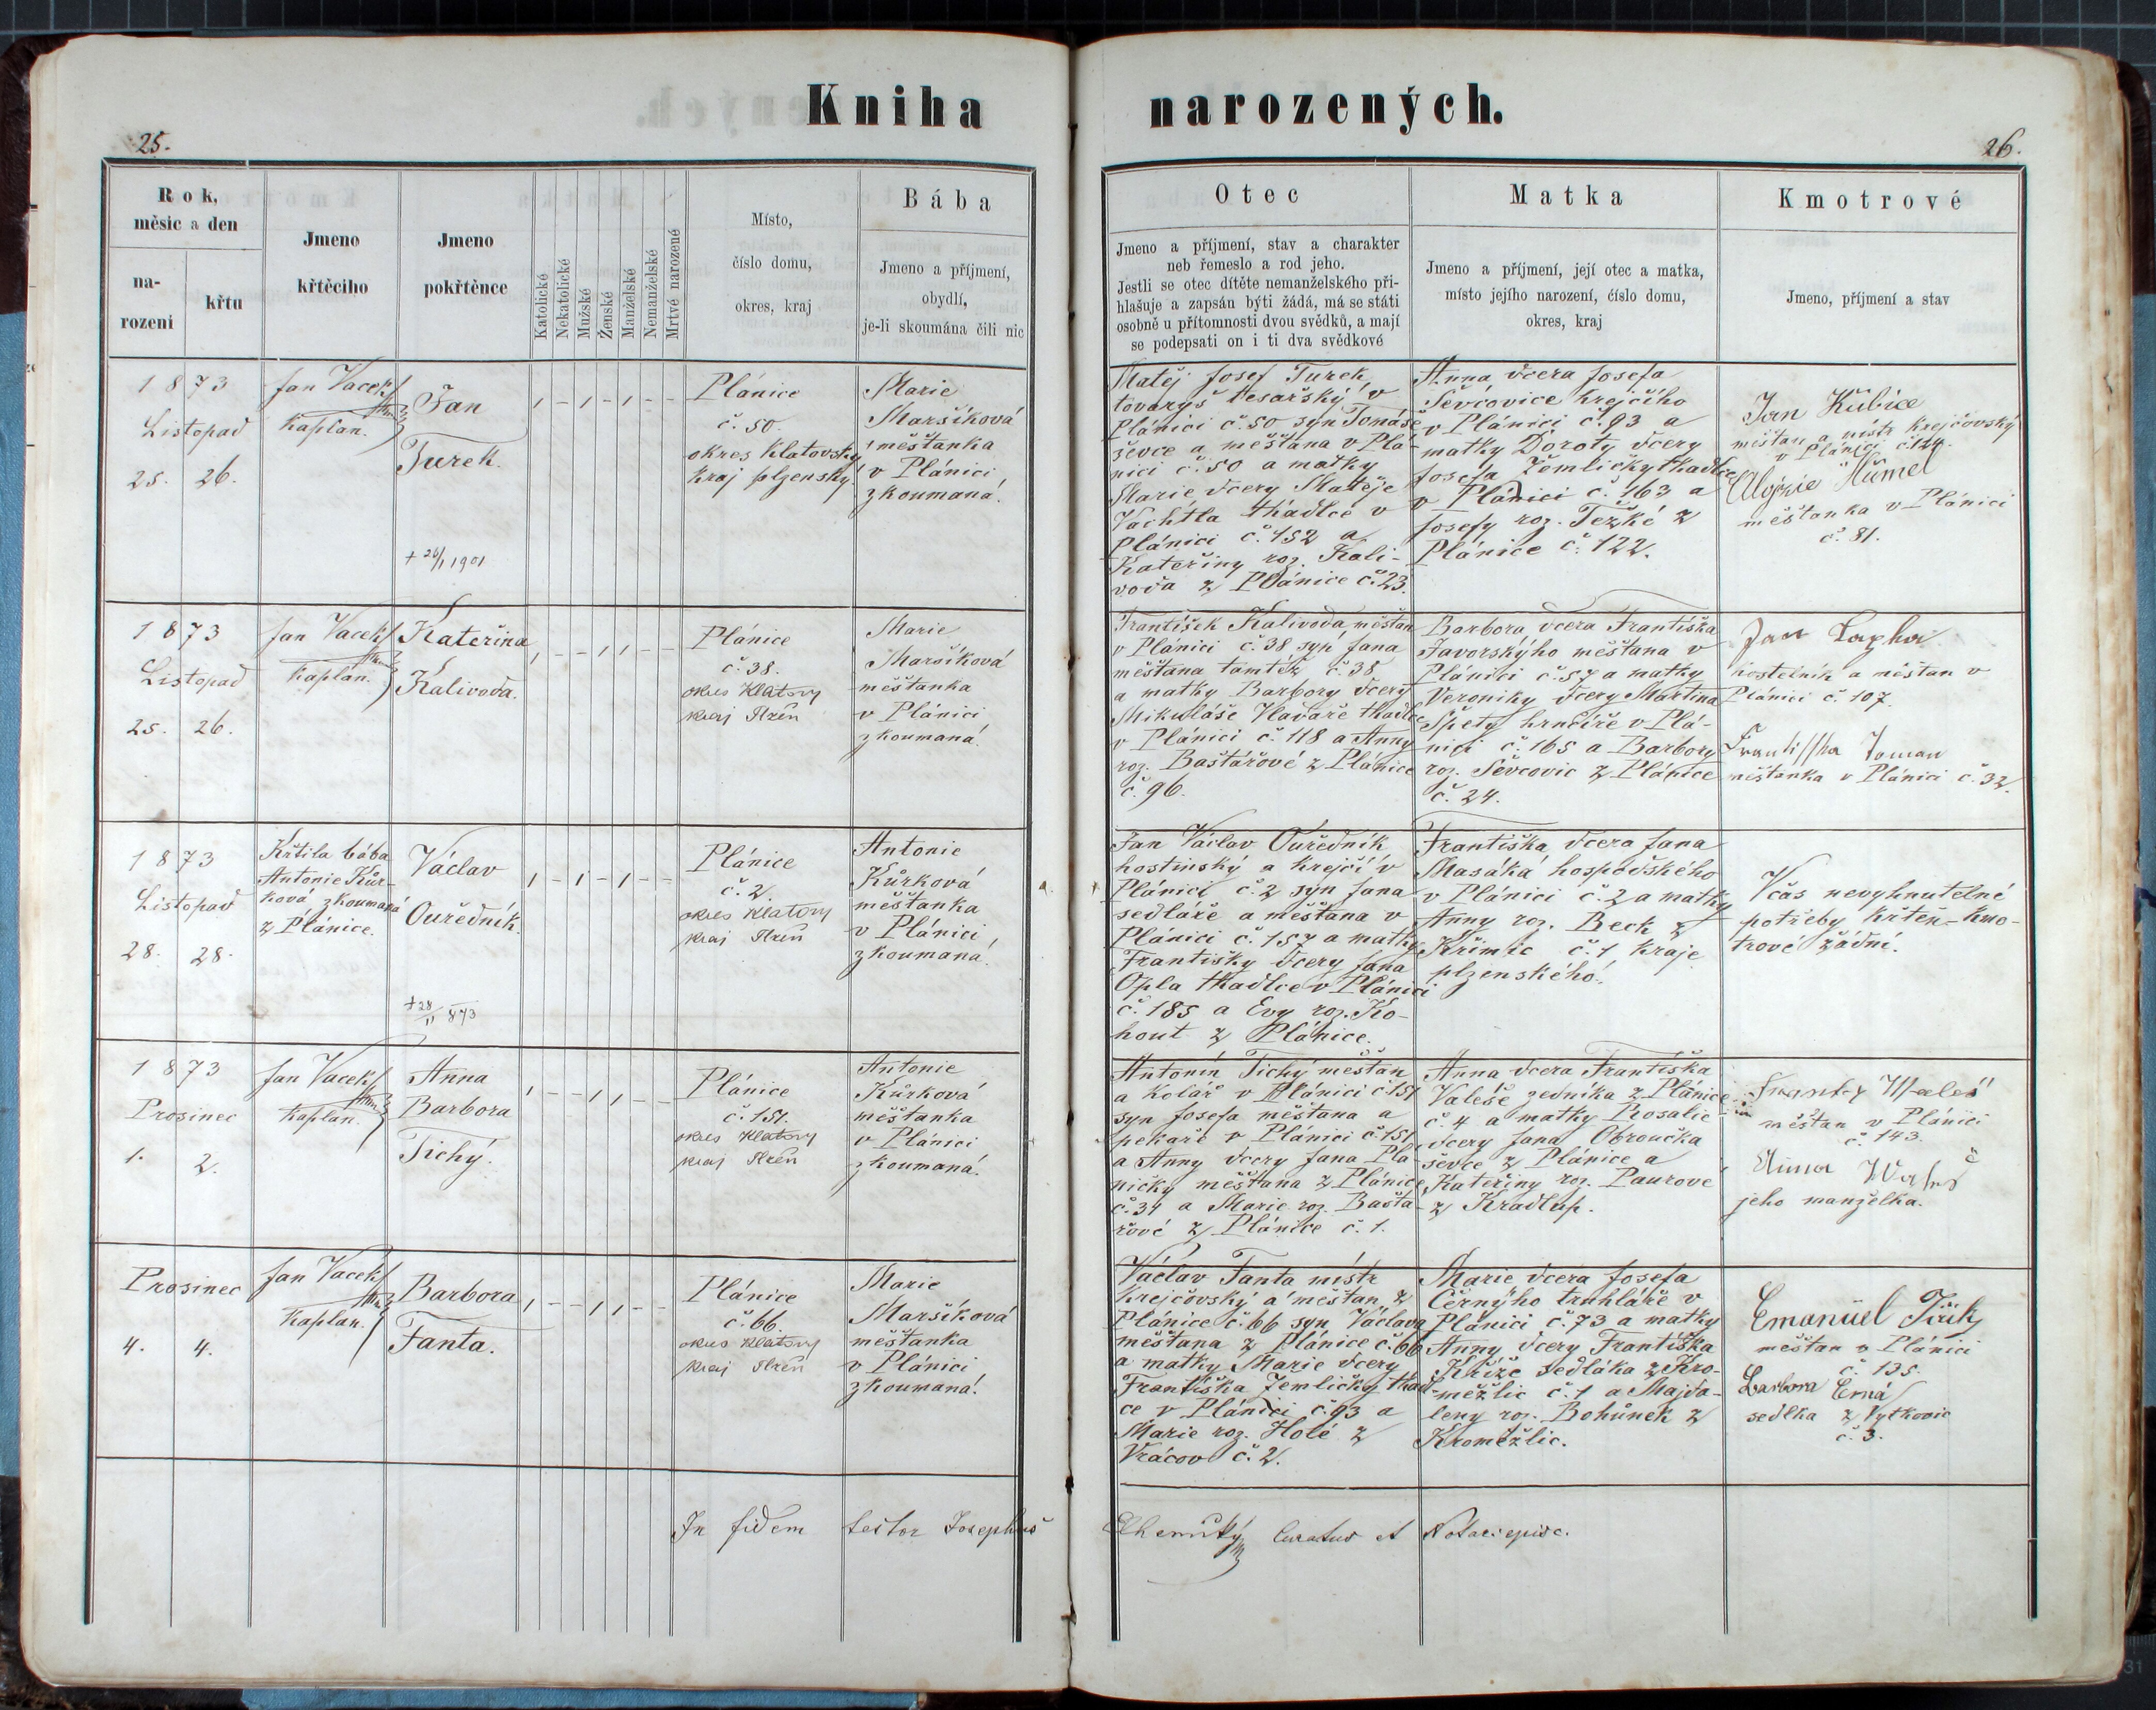 Kniha narozených.
25.
26.
Rok,
měsíc a den
na-
rození
křtu
Jmeno
křtěcího
Jmeno
pokřtěnce
Katolické
Nekatolické
Mužské
Ženské
Manželské
Nemanželské
Mrtvé narozené
Místo,
číslo domu,
okres, kraj
Bába
Jmeno a příjmení,
obydlí,
je-li skoumána čili nic
Otec
Jmeno a příjmení, stav a charakter
neb řemeslo a rod jeho.
Jestli se otec dítěte nemanželského při-
hlašuje a zapsán býti žádá, má se státi
osobně u přítomnosti dvou svědků, a mají
se podepsati on i ti dva svědkové
Matka
Jmeno a příjmení, její otec a matka,
místo jejího narození, číslo domu,
okres, kraj
Kmotrové
Jmeno, příjmení a stav
1873
Listopad
25. 26.
Jan Vacek
Kaplan.
Jan
Turek.
+ 26/1 1901
Plánice
č. 50.
okres Klatovský
Kraj plzenský.
Marie
Maršíková
měšťanka
v Plánici
zkoumaná.
Matěj Josef Turek
tovaryš tesařský v
Plánici č. 50 syn Tomáše
ševce a měšťana v Plá-
nici č. 50 a matky
Marie dcery Matěje
Vachtla tkadlce v
Plánici č. 152 a
Kateřiny roz. Kali-
voda z Plánice č. 23.
Anna dcera Josefa
Ševčovice krejčího
v Plánici č. 93 a
matky Doroty dcery
Josefa Žemličky tkadlce
v Plánici č. 163 a
Josefy roz. Težké z
Plánice č. 122.
Jan Kubice
měštan a mistr krejčovský
v Plánici č. 124.
Alojsie Hümel
měšťanka v Plánici
č. 81.
1873
Listopad
25. 26.
Jan Vacek
Kaplan.
Kateřina
Kalivoda.
Plánice
č. 38.
okres Klatovy
kraj Plzeň
Marie
Maršíková
měšťanka
v Plánici
zkoumaná.
František Kalivoda měšťan
v Plánici č. 38 syn Jana
měšťana tamtéž č. 38
a matky Barbory dcery
Mikuláše Vladaře tkadlce
v Plánici č. 118 a Anny
roz. Baštářové z Plánice
č. 96.
Barbora dcera Františka
Javorskýho měšťana v
Plánici č. 57 a matky
Veroniky dcery Martina
Špety hrnčíře v Plá-
nici č. 165 a Barbory
roz. Ševčovic z Plánice
č. 24.
Jan
kostelník a měštan v
Plánici č. 107.
Toman
měštanka v Plánici č. 32.
1873
Listopad
28. 28.
Křtila bába
Antonie Kůr-
ková zkoumaná
z Plánice.
Václav
Ouředník.
+ 28/11 873
Plánice
č. 2.
okres Klatovy
kraj Plzeň
Antonie
Kůrková
měšťanka
v Plánici
zkoumaná.
Jan Václav Ouředník
hostinský a krejčí v
Plánici č. 2 syn Jana
sedláře a měšťana v
Plánici č. 157 a matky
Františky dcery Jana
Opla tkadlce v Plánici
č. 185 a Evy roz. Ko-
hout z Plánice.
Františka dcera Jana
Masáka hospodského
v Plánici č. 2 a matky
Anny roz. Beck z
Křimic č. 1, kraje
plzenského.
Včas nevyhnutelné
potřeby křtěn – kmo-
trové žádní.
1873
Prosinec
1. 2.
Jan Vacek
Kaplan.
Anna
Barbora
Tichý.
Plánice
č. 151.
okres Klatovy
kraj Plzeň
Antonie
Kůrková
měšťanka
v Plánici
zkoumaná.
Antonín Tichý měšťan
a kolář v Plánici č. 151
syn Josefa měšťana a
pekaře v Plánici č. 151
a Anny dcery Jana Pla-
ničky měšťana z Plánice
č. 34 a Marie roz. Bašta-
řové z Plánice č. 1.
Anna dcera Františka
Valeše zedníka z Plánice
č. 4 a matky Rosalie
dcery Jana Obroučka
ševce z Plánice a
Kateřiny roz. Paurové
z Kradlup.
měštan v Plánici
č. 143.
Anna
jeho manželka.
Prosinec
4. 4.
Jan Vacek
Kaplan.
Barbora
Fanta.
Plánice
č. 66.
okres Klatovy
kraj Plzeň
Marie
Maršíková
měšťanka
v Plánici
zkoumaná.
Václav Fanta mistr
krejčovský a měšťan z
Plánice č. 66 syn Václava
měšťana z Plánice č. 66
a matky Marie dcery
Františka Žemličky tkad-
ce v Plánici č. 93 a
Marie roz. Holé z
Vrácov č. 2.
Marie dcera Josefa
Černýho truhláře v
Plánici č. 73 a matky
Anny dcery Františka
Kříže sedláka z Kro-
měžlic č. 1 a Majda-
leny roz. Bohůnek z
Kroměžlic.
Emanüel
měštan v Plánici
č. 135.
Barbora
sedlka z Vytkovic
č. 3.
In fidem testor Josephus
curatus et Notar. episc.